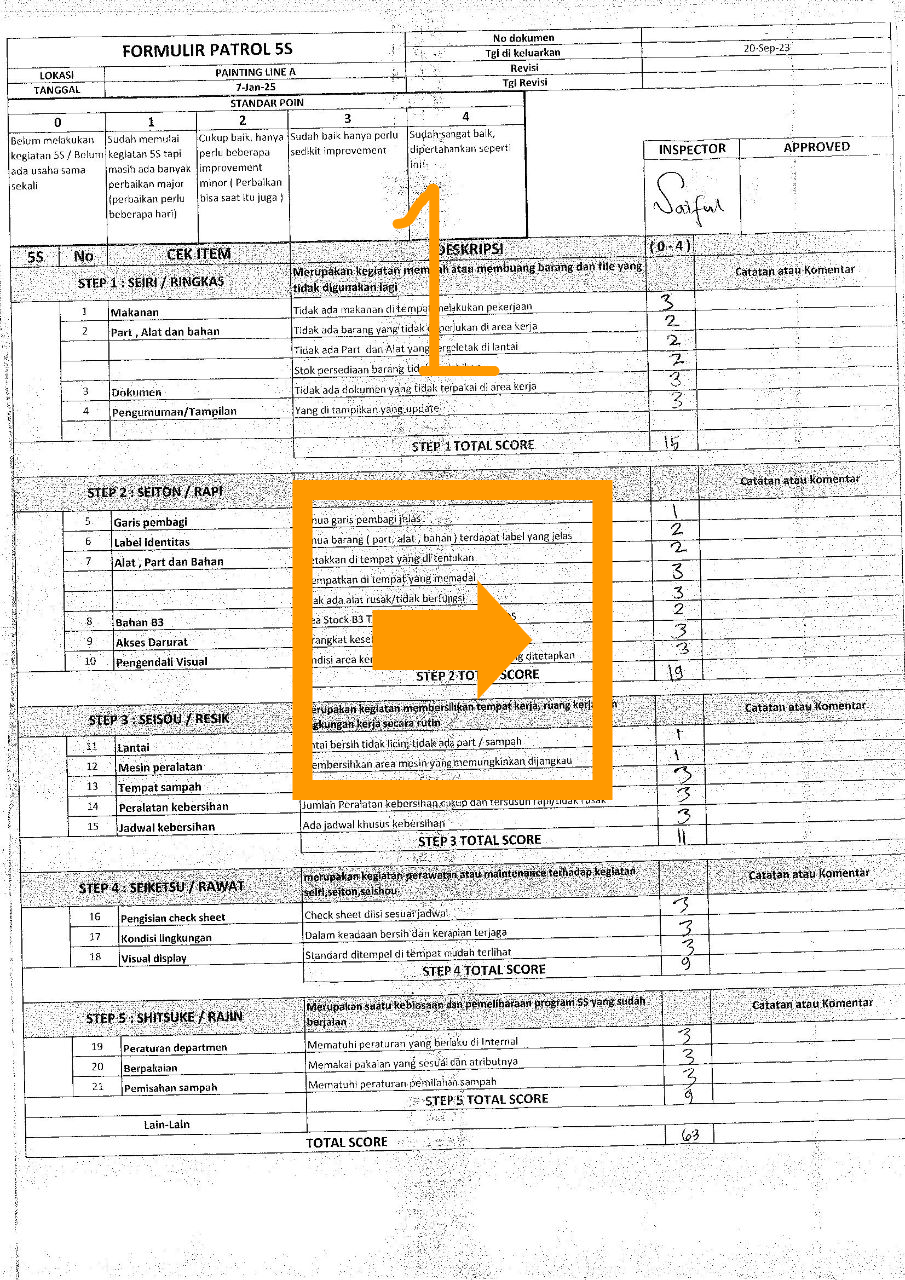 FORMULIR PATROL 5S
No dokumen
Tgl di keluarkan 20-Sep-23
Revisi
Tgl Revisi
LOKASI PAINTING LINE A
TANGGAL 7-Jan-25
STANDAR POIN
0 1 2 3 4
Belum melakukan kegiatan 5S / Belum ada usaha sama sekali
Sudah memulai kegiatan 5S tapi masih ada banyak perbaikan major (perbaikan perlu beberapa hari)
Cukup baik, hanya perlu beberapa improvement minor ( Perbaikan bisa saat itu juga )
Sudah baik hanya perlu sedikit improvement
Sudah sangat baik, dipertahankan seperti ini
INSPECTOR APPROVED
Saiful
1
5S No CEK ITEM DESKRIPSI (0-4)
STEP 1 : SEIRI / RINGKAS Merupakan kegiatan atau membuang barang dan file yang tidak digunakan lagi Catatan atau Komentar
1 Makanan Tidak ada makanan di tempat melakukan pekerjaan 3
2 Part , Alat dan bahan Tidak ada barang yang tidak di area kerja 2
Tidak ada Part dan Alat yang di lantai 2
Stok persediaan barang 2
3 Dokumen Tidak ada dokumen yang tidak terpakai di area kerja 3
4 Pengumuman/Tampilan Yang di tampilkan yang update 3
STEP 1 TOTAL SCORE 15
STEP 2 : SEITON / RAPI Catatan atau Komentar
5 Garis pembagi garis pembagi jelas 1
6 Label Identitas barang ( part, alat , bahan ) terdapat label yang jelas 2
7 Alat , Part dan Bahan di tempat yang di tentukan 2
di tempat yang memadai 3
ada alat rusak/tidak berfungsi 3
8 Bahan B3 Stock B3 2
9 Akses Darurat 3
10 Pengendali Visual area ditetapkan 3
STEP 2 TOTAL SCORE 19
STEP 3 : SEISOU / RESIK kegiatan membersihkan tempat kerja, ruang kerja kerja secara rutin Catatan atau Komentar
11 Lantai bersih tidak licin, tidak ada part / sampah 1
12 Mesin peralatan area mesin yang memungkinkan dijangkau 1
13 Tempat sampah 3
14 Peralatan kebersihan Jumlah Peralatan kebersihan cukup dan tersusun rapi/tidak rusak 3
15 Jadwal kebersihan Ada jadwal khusus kebersihan 3
STEP 3 TOTAL SCORE 11
STEP 4 : SEIKETSU / RAWAT merupakan kegiatan perawatan atau maintenance terhadap kegiatan seiri,seiton,seishou Catatan atau Komentar
16 Pengisian check sheet Check sheet diisi sesuai jadwal 3
17 Kondisi lingkungan Dalam keadaan bersih dan kerapian terjaga 3
18 Visual display Standard ditempel di tempat mudah terlihat 3
STEP 4 TOTAL SCORE 9
STEP 5 : SHITSUKE / RAJIN Merupakan suatu kebiasaan dan pemeliharaan program 5S yang sudah berjalan Catatan atau Komentar
19 Peraturan departmen Mematuhi peraturan yang berlaku di Internal 3
20 Berpakaian Memakai pakaian yang sesuai dan atributnya 3
21 Pemisahan sampah Mematuhi peraturan pemilahan sampah 3
STEP 5 TOTAL SCORE 9
Lain-Lain
TOTAL SCORE 63